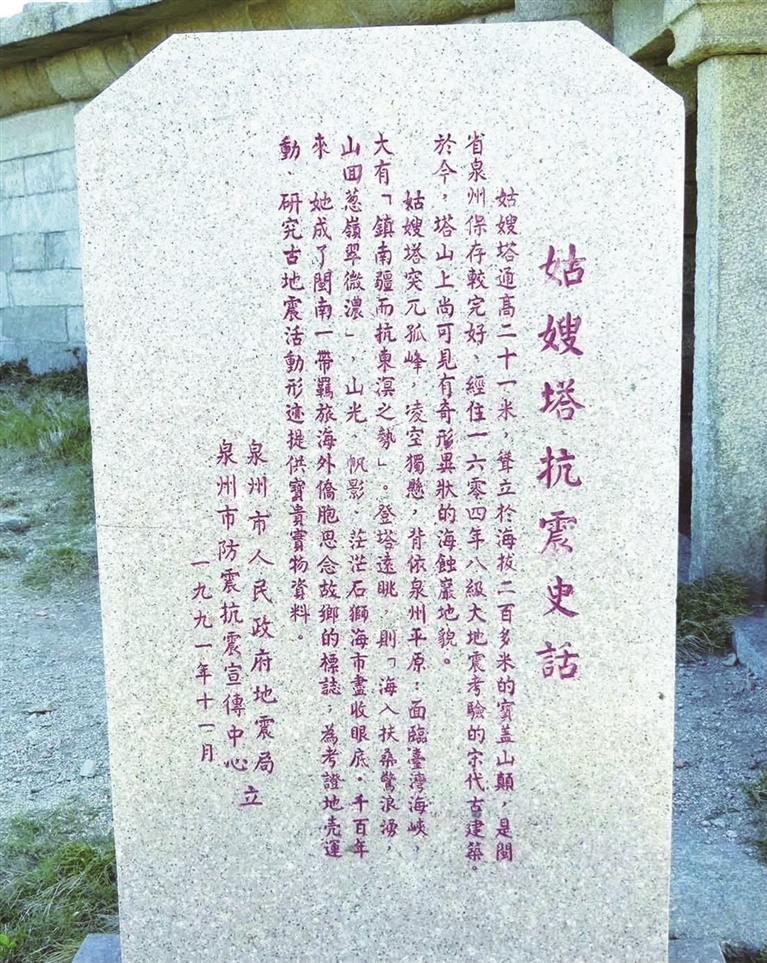 姑嫂塔抗震史話
姑嫂塔通高二十一米，聳立於海拔二百多米的寶盖山顛，是閩
省泉州保存較完好、經住一六零四年八級大地震考驗的宋代古建築。
於今，塔山上尚可見有奇形異狀的海蝕巖地貌。
姑嫂塔突兀孤峰，凌空獨懸，背依泉州平原；面臨臺灣海峽，
大有「鎮南疆而抗東溟之勢」。登塔遠眺，則「海入扶桑驚浪湧，
山回葱嶺翠微濃」，山光、帆影、茫茫石獅海市盡收眼底。千百年
來　她成了閩南一帶羈旅海外僑胞思念故鄉的標誌；為考證地壳運
動、研究古地震活動形迹提供寶貴實物資料。
泉州市人民政府地震局
泉州市防震抗震宣傳中心 立
一九九一年十一月